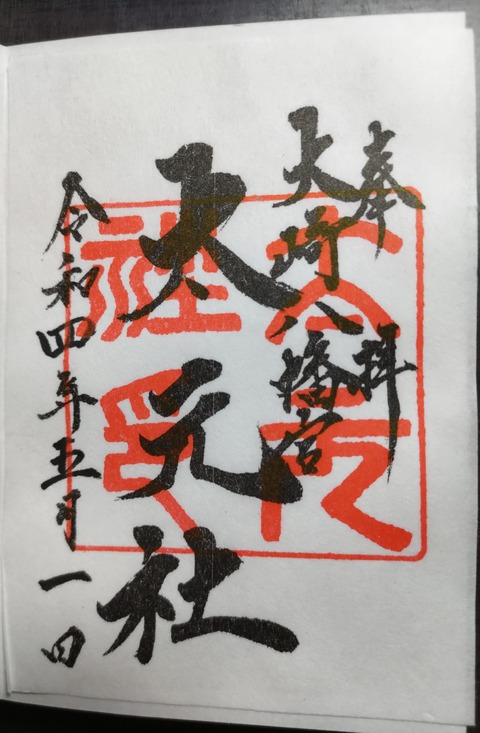 奉拝
大崎八幡宮
太元社
令和四年五月一日
太元
社印